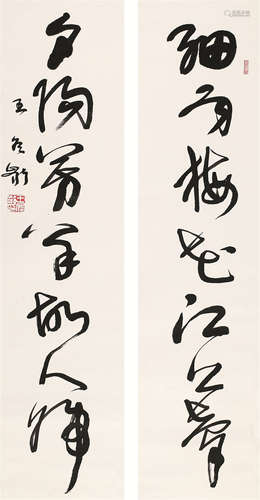 細雨梅花江上
夕陽芳草故人歸
王冬齡